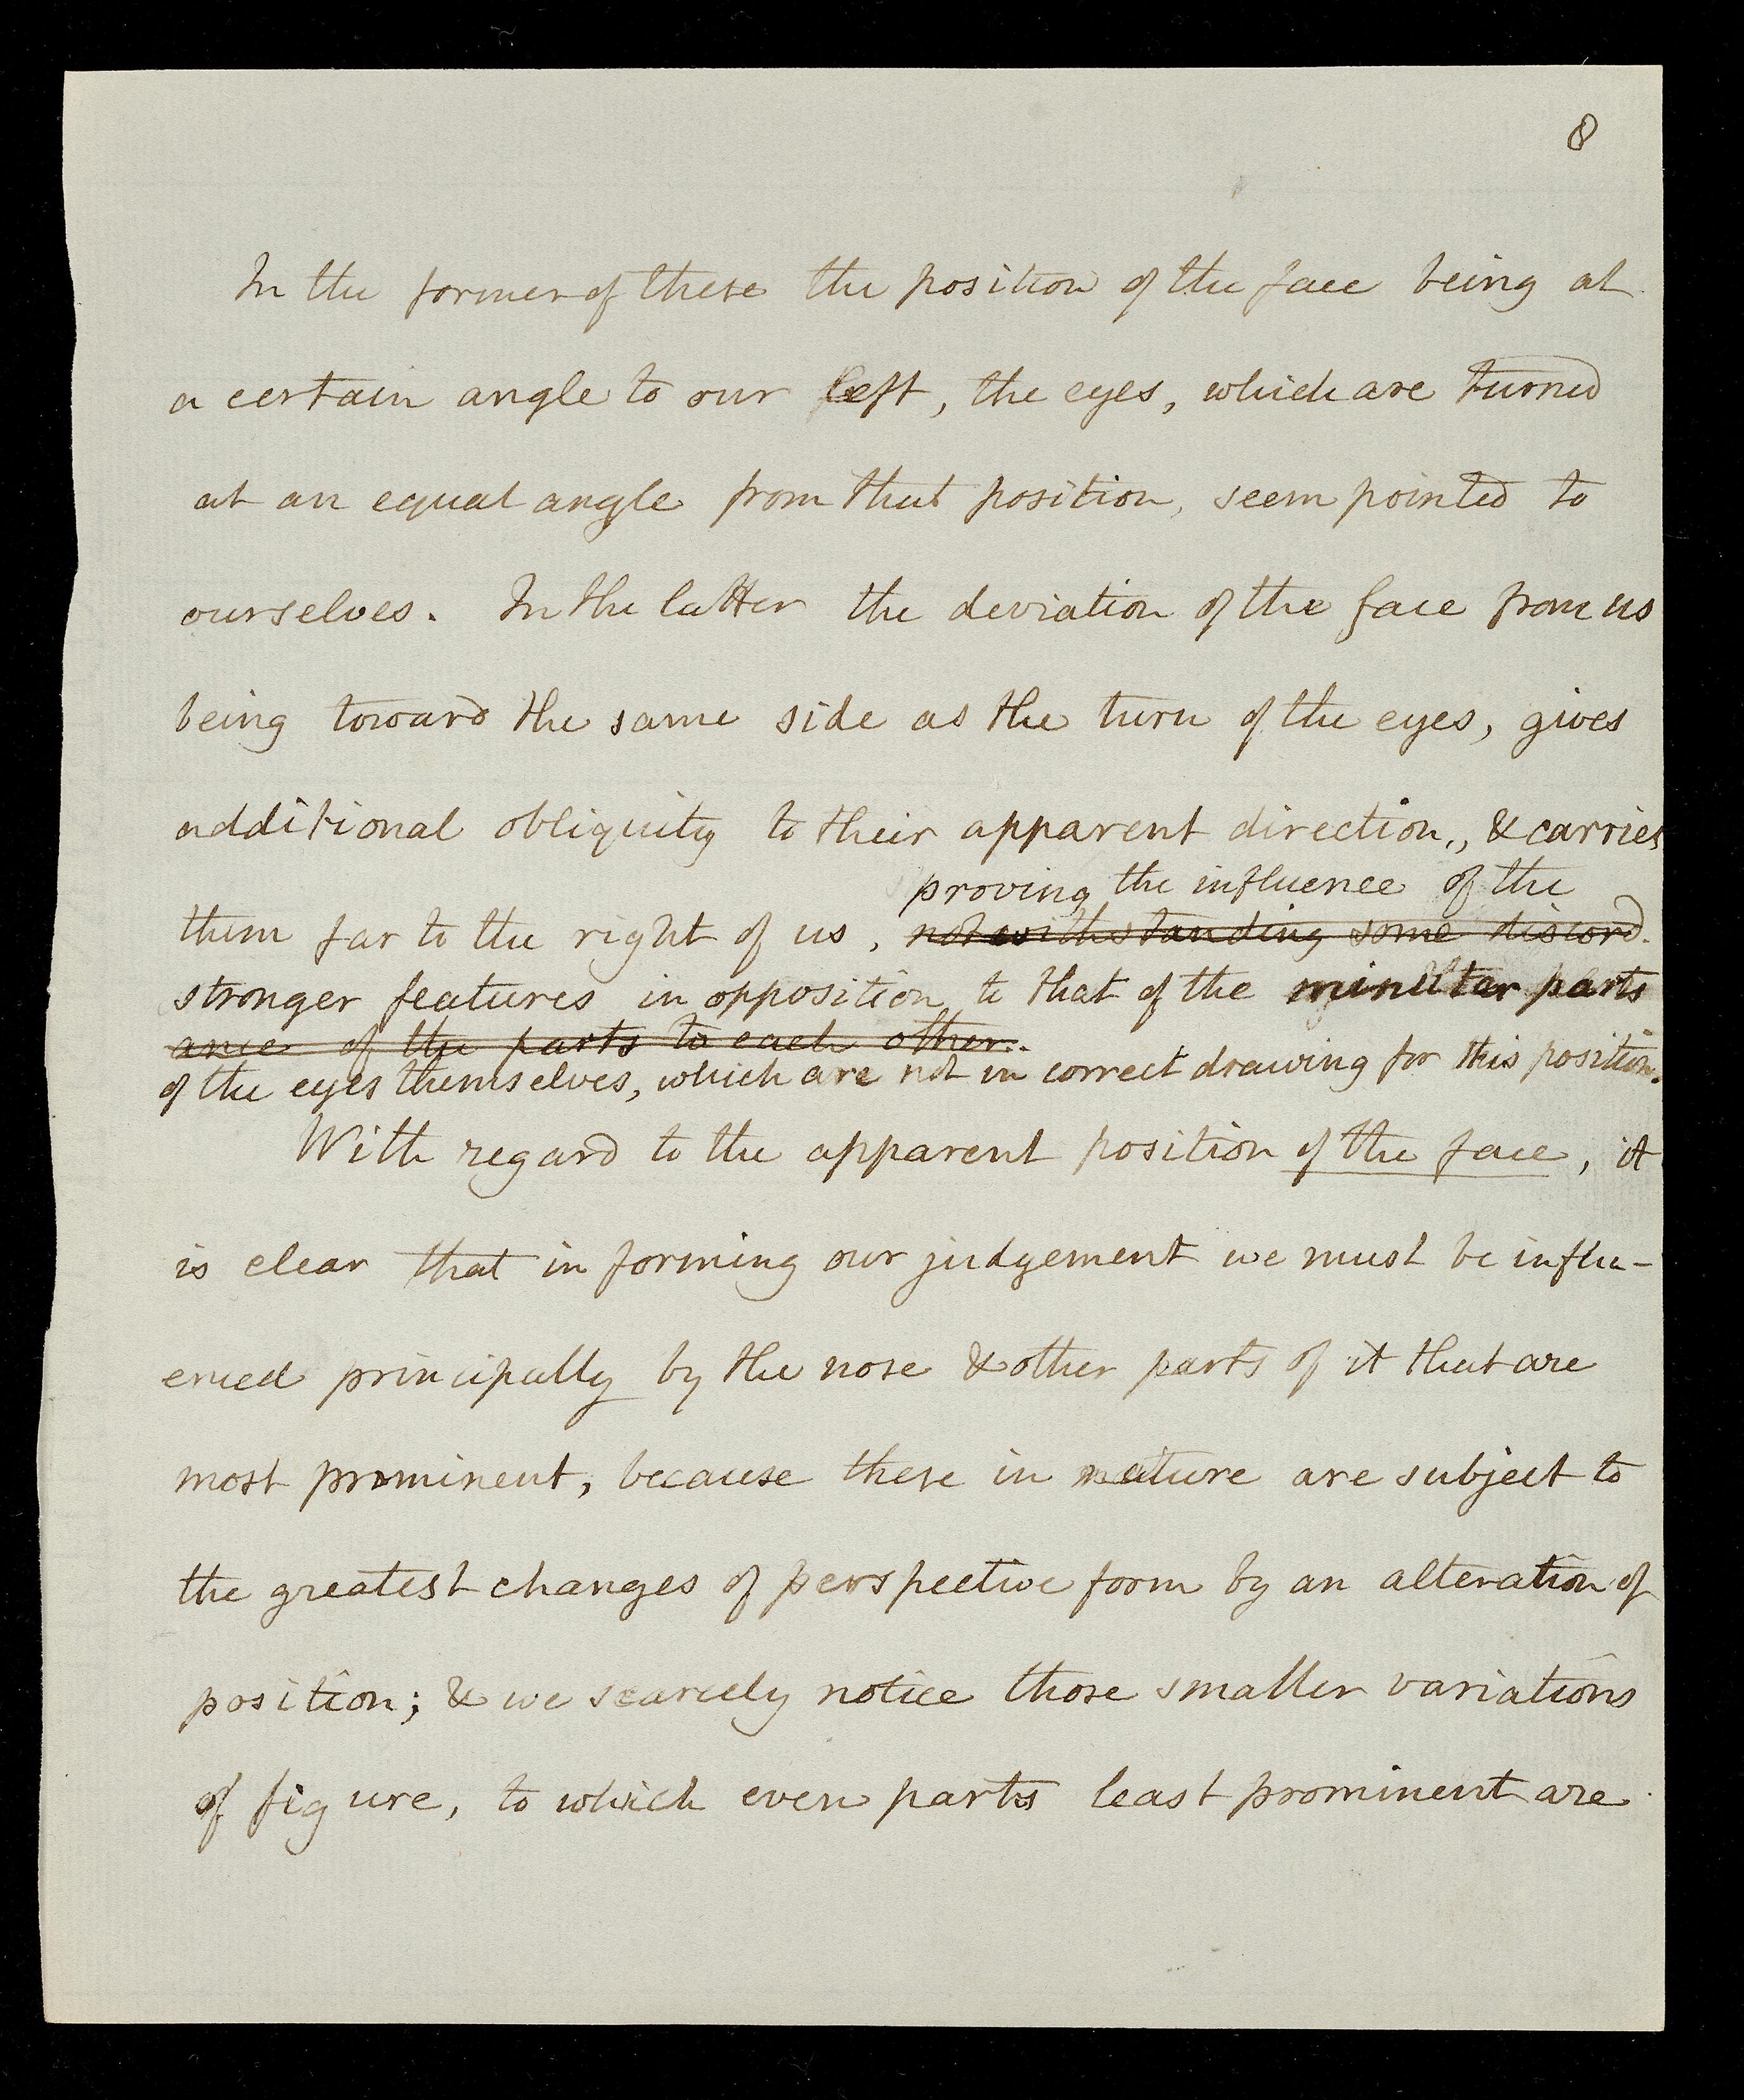 8
In the former of these the position of the face being at
a certain angle to our left, the eyes, which are turned
at an equal angle from that position, seem pointed to
ourselves. In the latter the deviation of the face from us
being toward the same side as the turn of the eyes, gives
additional obliquity to their apparent direction,, & carries
proving the influence of the
them far to the right of us, notwithstanding some discord-
stronger features in opposition to that of the minuter parts
ance of the parts to each other.
of the eyes themselves, which are not in correct drawing for this position.
With regard to the apparent position of the face, it
is clear that in forming our judgement we must be influ-
enced principally by the nose & other parts of it that are
most prominent, because these in nature are subject to
the greatest changes of perspective form by an alteration of
position; & we scarcely notice those smaller variations
of figure, to which even parts least prominent are